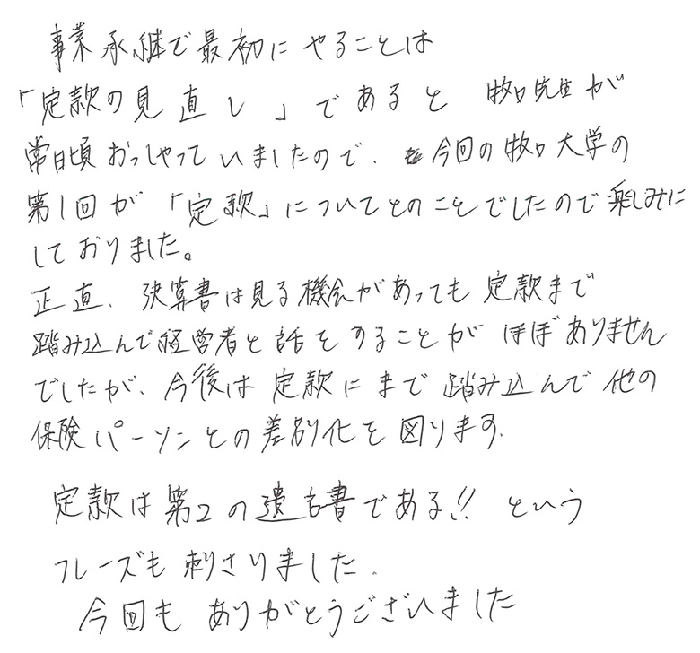 事業承継で最初にやることは
「定款の見直し」であると 牧口先生が
常日頃おっしゃっていましたので、今回の牧口大学の
第1回が「定款」についてとのことでしたので楽しみに
しておりました。
正直、決算書は見る機会があっても定款まで
踏み込んで経営者と話をすることがほぼありません
でしたが、今後は定款にまで踏み込んで他の
保険パーソンとの差別化を図ります。
定款は第2の遺言書である!! という
フレーズも刺さりました。
今回も ありがとうございました